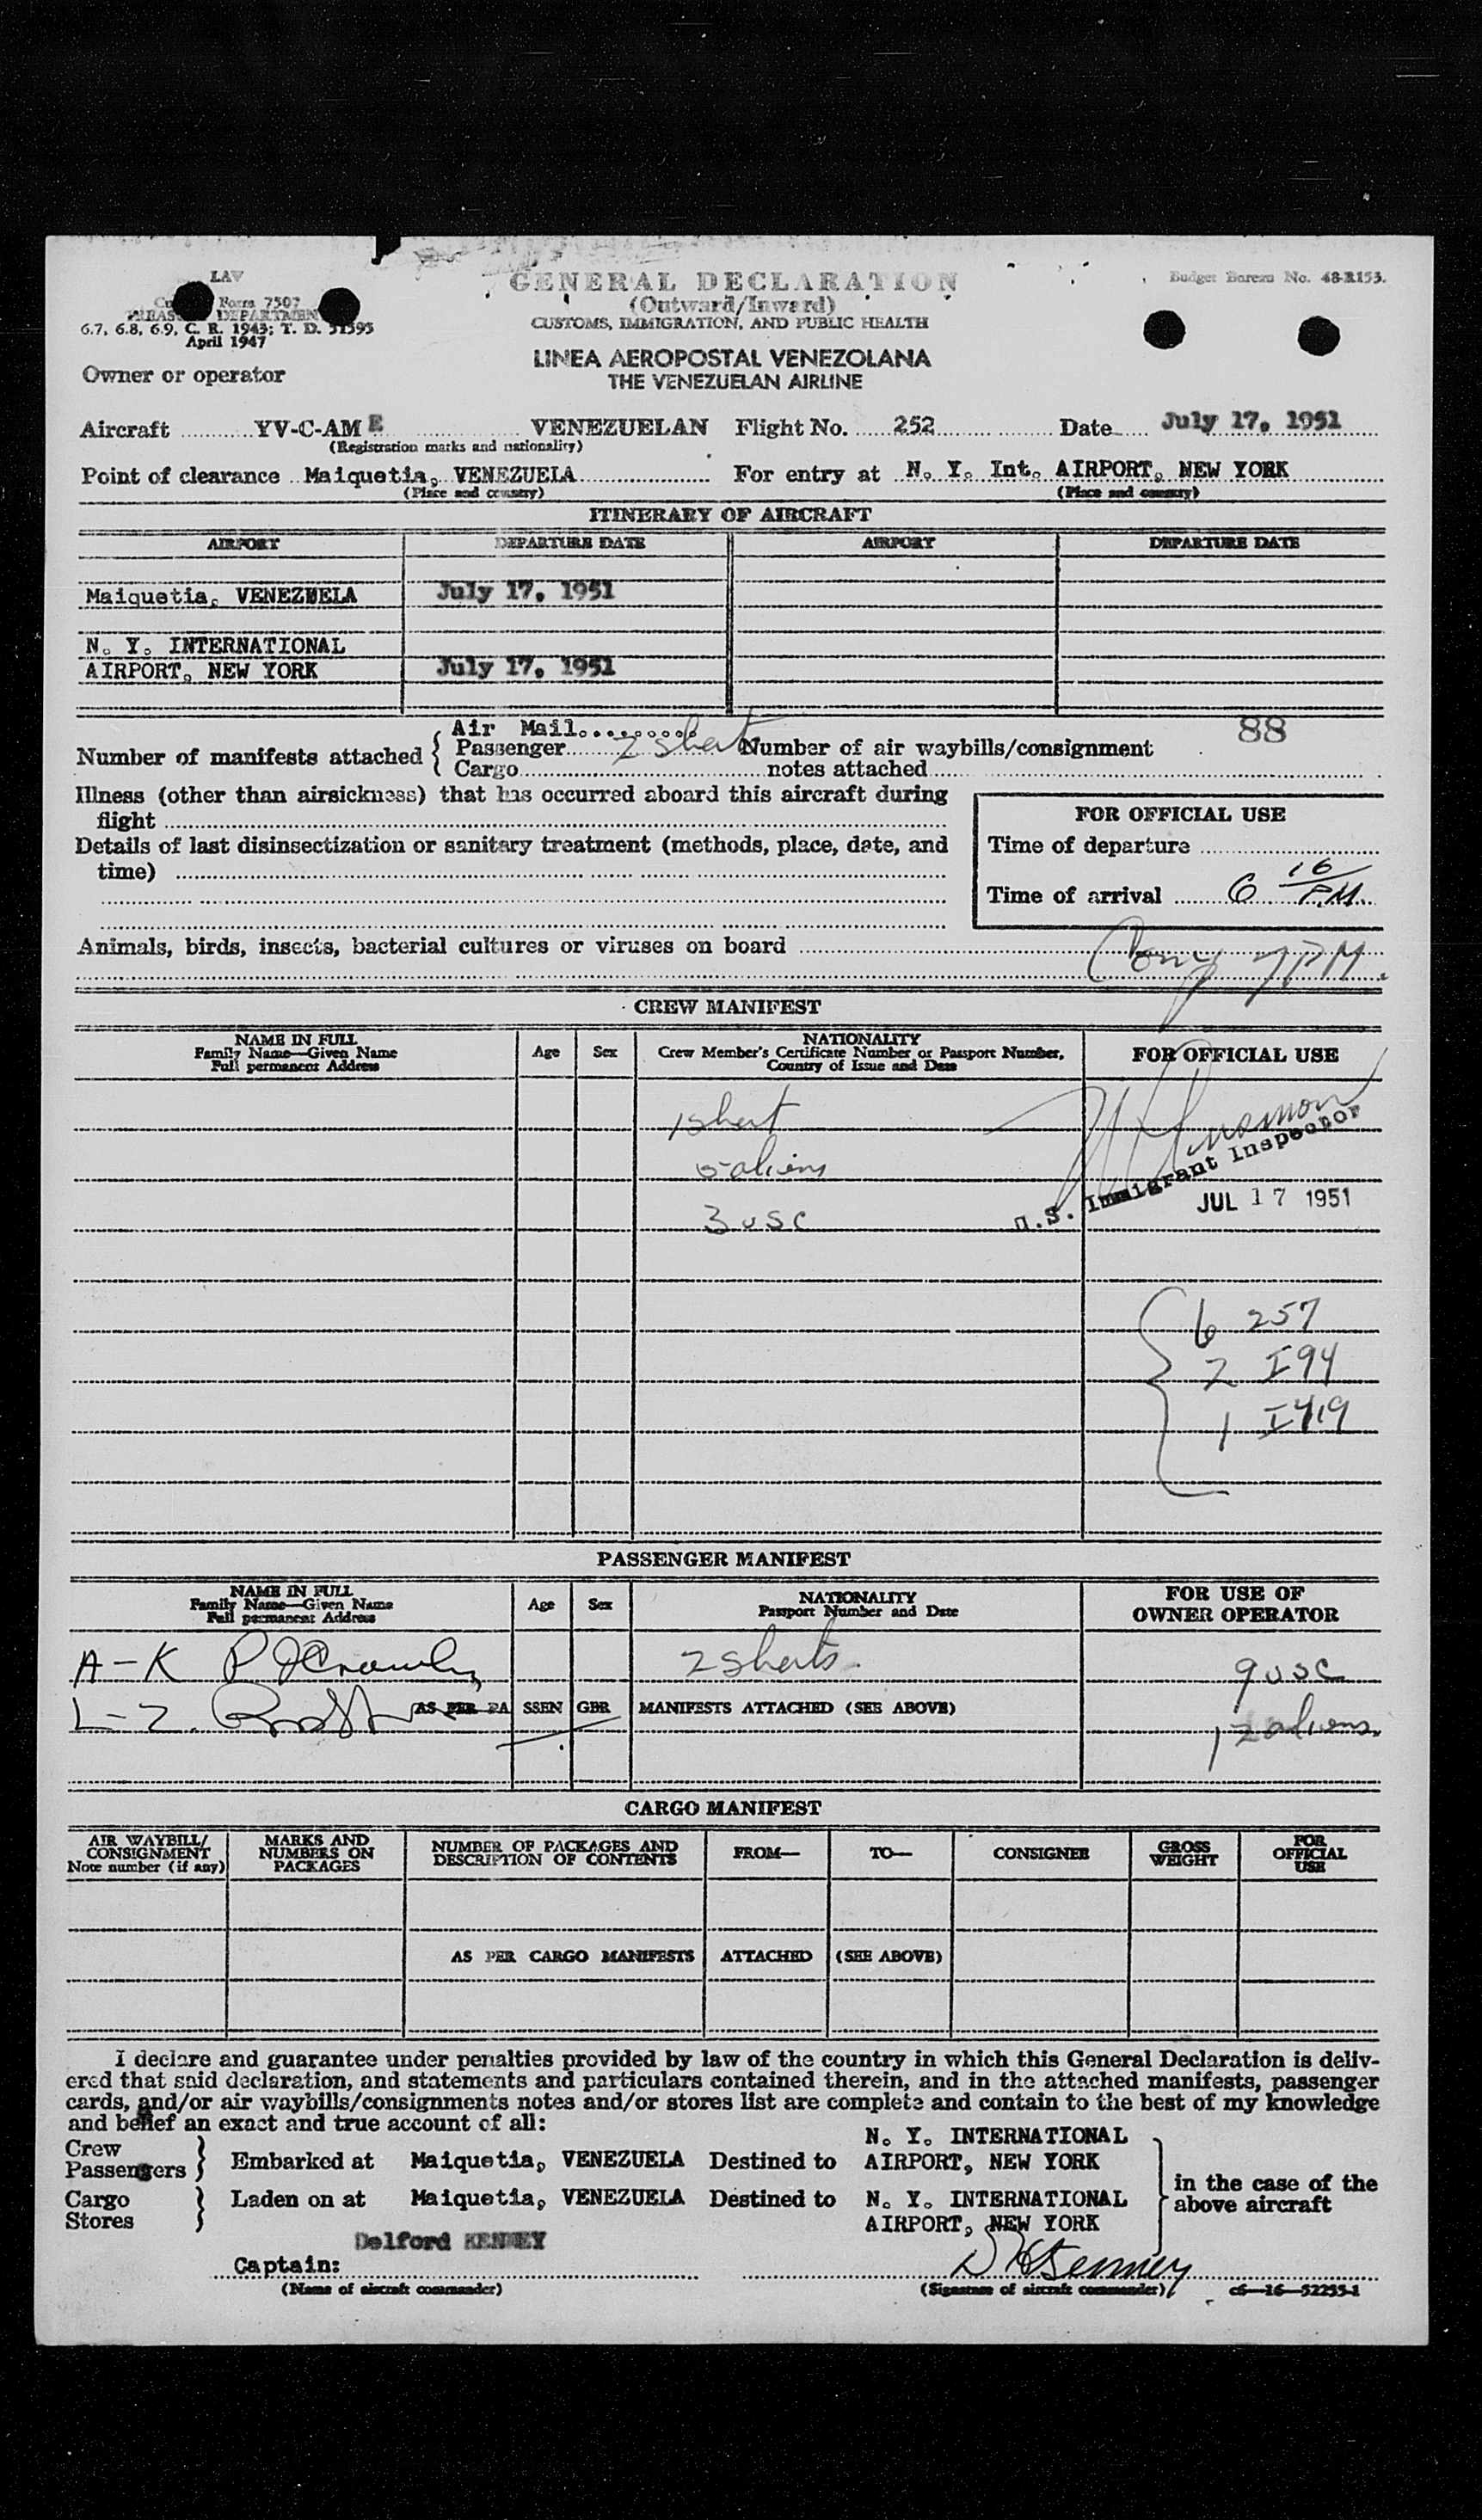 LAV
Form 7507
TREASURY DEPARTMENT
6.7, 6.8, 6.9, C. R. 1943; T. D. 51595
April 1947
GENERAL DECLARATION
(Outward/Inward)
CUSTOMS, IMMIGRATION, AND PUBLIC HEALTH
Budget Bureau No. 48-R153.
LINEA AEROPOSTAL VENEZOLANA
THE VENEZUELAN AIRLINE
Owner or operator
Aircraft YV-C-AME VENEZUELAN Flight No. 252 Date July 17, 1951
(Registration marks and nationality)
Point of clearance Maiquetia, VENEZUELA For entry at N. Y. Int. AIRPORT, NEW YORK
(Place and country) (Place and country)
ITINERARY OF AIRCRAFT
AIRPORT DEPARTURE DATE AIRPORT DEPARTURE DATE
Maiquetia, VENEZUELA July 17, 1951
N. Y. INTERNATIONAL
AIRPORT, NEW YORK July 17, 1951
88
Number of manifests attached { Air Mail
Passenger 2 sheet Number of air waybills/consignment
Cargo notes attached
Illness (other than airsickness) that has occurred aboard this aircraft during
flight
Details of last disinsectization or sanitary treatment (methods, place, date, and
time)
FOR OFFICIAL USE
Time of departure
Time of arrival 6 16 P.M.
Animals, birds, insects, bacterial cultures or viruses on board
7 PM
CREW MANIFEST
NAME IN FULL
Family Name—Given Name
Full permanent Address
Age Sex
NATIONALITY
Crew Member's Certificate Number or Passport Number,
Country of Issue and Date
FOR OFFICIAL USE
1 sheet
5 aliens
3 usc
U.S. Immigrant Inspector
JUL 17 1951
6 257
2 I 94
1 I 419
PASSENGER MANIFEST
NAME IN FULL
Family Name—Given Name
Full permanent Address
Age Sex
NATIONALITY
Passport Number and Date
FOR USE OF
OWNER OPERATOR
A-K 2 sheets 9 usc
L-Z AS PER PA SSEN GER MANIFESTS ATTACHED (SEE ABOVE)
12 aliens
CARGO MANIFEST
AIR WAYBILL/
CONSIGNMENT
Note number (if any)
MARKS AND
NUMBERS ON
PACKAGES
NUMBER OF PACKAGES AND
DESCRIPTION OF CONTENTS
FROM— TO— CONSIGNEE
GROSS
WEIGHT
FOR
OFFICIAL
USE
AS PER CARGO MANIFESTS ATTACHED (SEE ABOVE)
I declare and guarantee under penalties provided by law of the country in which this General Declaration is deliv-
ered that said declaration, and statements and particulars contained therein, and in the attached manifests, passenger
cards, and/or air waybills/consignments notes and/or stores list are complete and contain to the best of my knowledge
and belief an exact and true account of all:
Crew
Passengers } Embarked at Maiquetia, VENEZUELA Destined to N. Y. INTERNATIONAL
AIRPORT, NEW YORK
Cargo
Stores } Laden on at Maiquetia, VENEZUELA Destined to N. Y. INTERNATIONAL
AIRPORT, NEW YORK
in the case of the
above aircraft
Delford KENNEY
Captain: D Kenney
(Name of aircraft commander) (Signature of aircraft commander) c6—16—52255-1